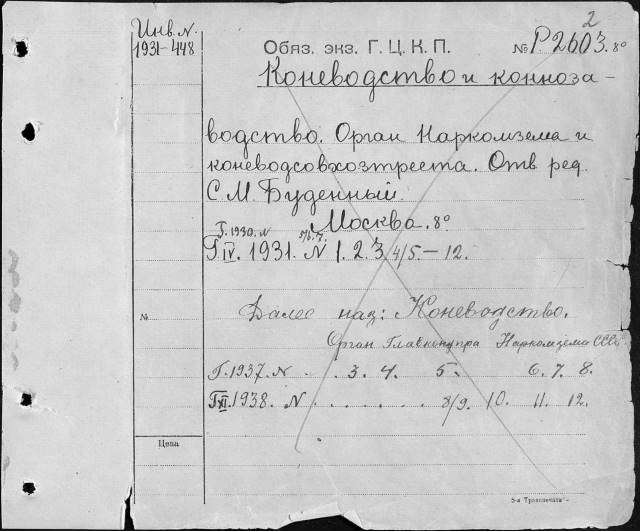 2
Инв. N.
1931-448
Обяз. экз. Г. Ц. К. П.
№ Р. 2603. 8°
Коневодство и конноза-
водство. Орган Наркомзема и
коневодсовхозтреста. Отв ред.
С. М. Буденный.
Москва. 8°
Г. 1930. N 5/6. 7.
Г. IV. 1931. N 1. 2. 3. 4/5. — 12.
№
Далее наз: Коневодство.
Орган Наркомзема СССР
Г. 1937. N . . 3. 4. 5. 6. 7. 8.
Г. XI. 1938. N . . . . . . 8/9. 10. 11. 12.
Цена
5-я Транспечать